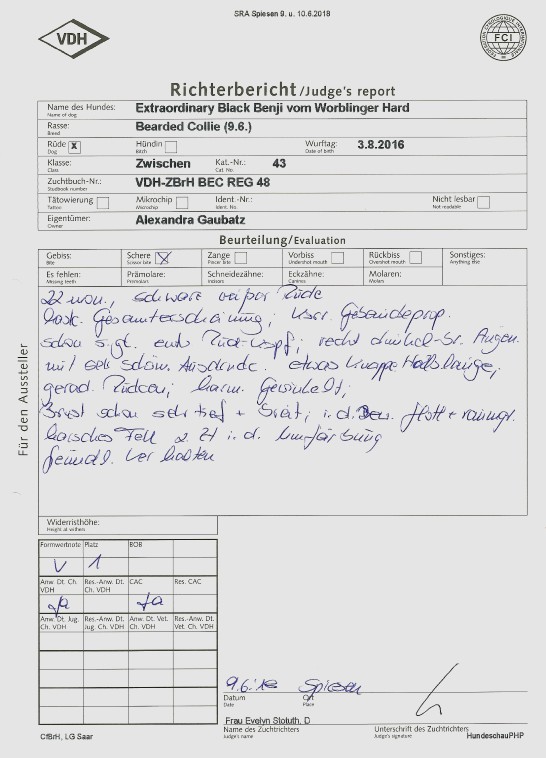 SRA Spiesen 9. u. 10.6.2018
VDH
FCI
Richterbericht /Judge's report
Name des Hundes: Extraordinary Black Benji vom Worblinger Hard
Name of dog
Rasse: Bearded Collie (9.6.)
Breed
Rüde x Hündin Wurftag: 3.8.2016
Dog Bitch Date of birth
Klasse: Zwischen Kat.-Nr.: 43
Class Cat. No.
Zuchtbuch-Nr.: VDH-ZBrH BEC REG 48
Studbook number
Tätowierung Mikrochip Ident.-Nr.: Nicht lesbar
Tattoo Microchip Ident. No. Not readable
Eigentümer: Alexandra Gaubatz
Owner
Beurteilung/Evaluation
Gebiss: Schere X Zange Vorbiss Rückbiss Sonstiges:
Bite Scissor bite Pincer bite Undershot mouth Overshot mouth Anything else
Es fehlen: Prämolare: Schneidezähne: Eckzähne: Molaren:
Missing teeth Premolars Incisors Canines Molars
22 mon., schwarz Rüde
Gesamterscheinung,
schon s. gt. recht dunkel-br. Augen
mit sehr schön. Ausdruck. etwas knappe Halslänge,
gerad. Rücken, harm. Gewinkelt,
Brust schon sehr tief + breit, i.d. Bew. flott + raumgr.
Fell z. Zt i.d. Umfärbung
freundl. Verhalten
Für den Aussteller
Widerristhöhe:
Height at withers
Formwertnote Platz BOB
V 1
Anw. Dt. Ch. VDH Res.-Anw. Dt. Ch. VDH CAC Res. CAC
ja ja
Anw. Dt. Jug. Ch. VDH Res.-Anw. Dt. Jug. Ch. VDH Anw. Dt. Vet. Ch. VDH Res.-Anw. Dt. Vet. Ch. VDH
9.6.18 Spiesen
Datum Ort
Date Place
Frau Evelyn Stotuth, D
Name des Zuchtrichters Unterschrift des Zuchtrichters
Judge's name Judge's signature
HundeschauPHP
CfBrH, LG Saar